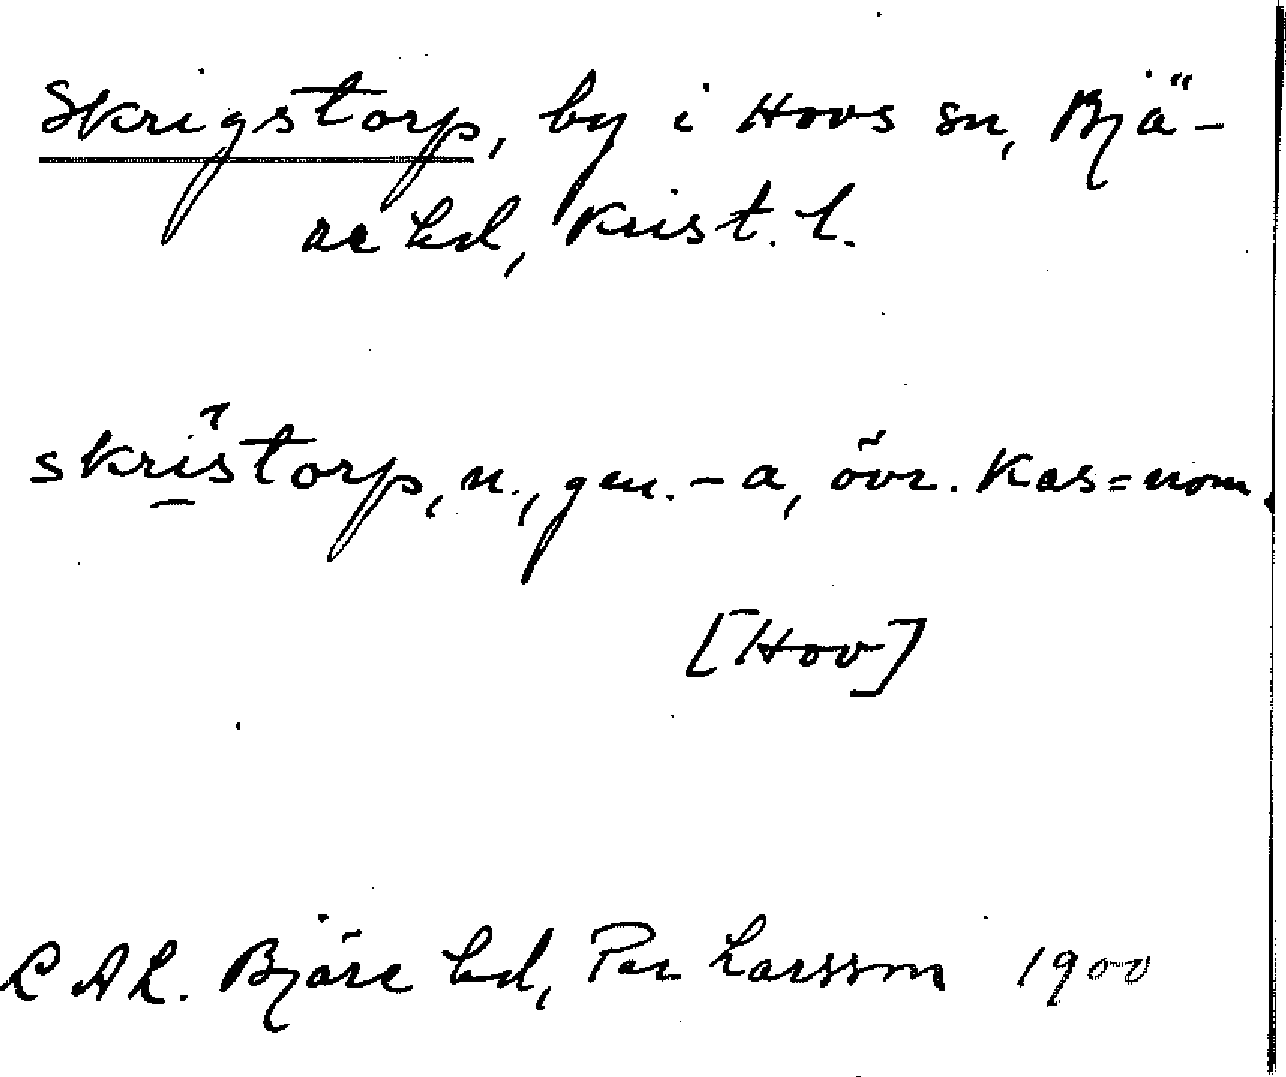 Skrigstorp, by i Hovs sn, Bjä-
re hd, Krist. l.
skristorp, n., gen. -a, övr. kas = nom.
[Hov]
LAL. Bjäre hd, Per Larsson 1900